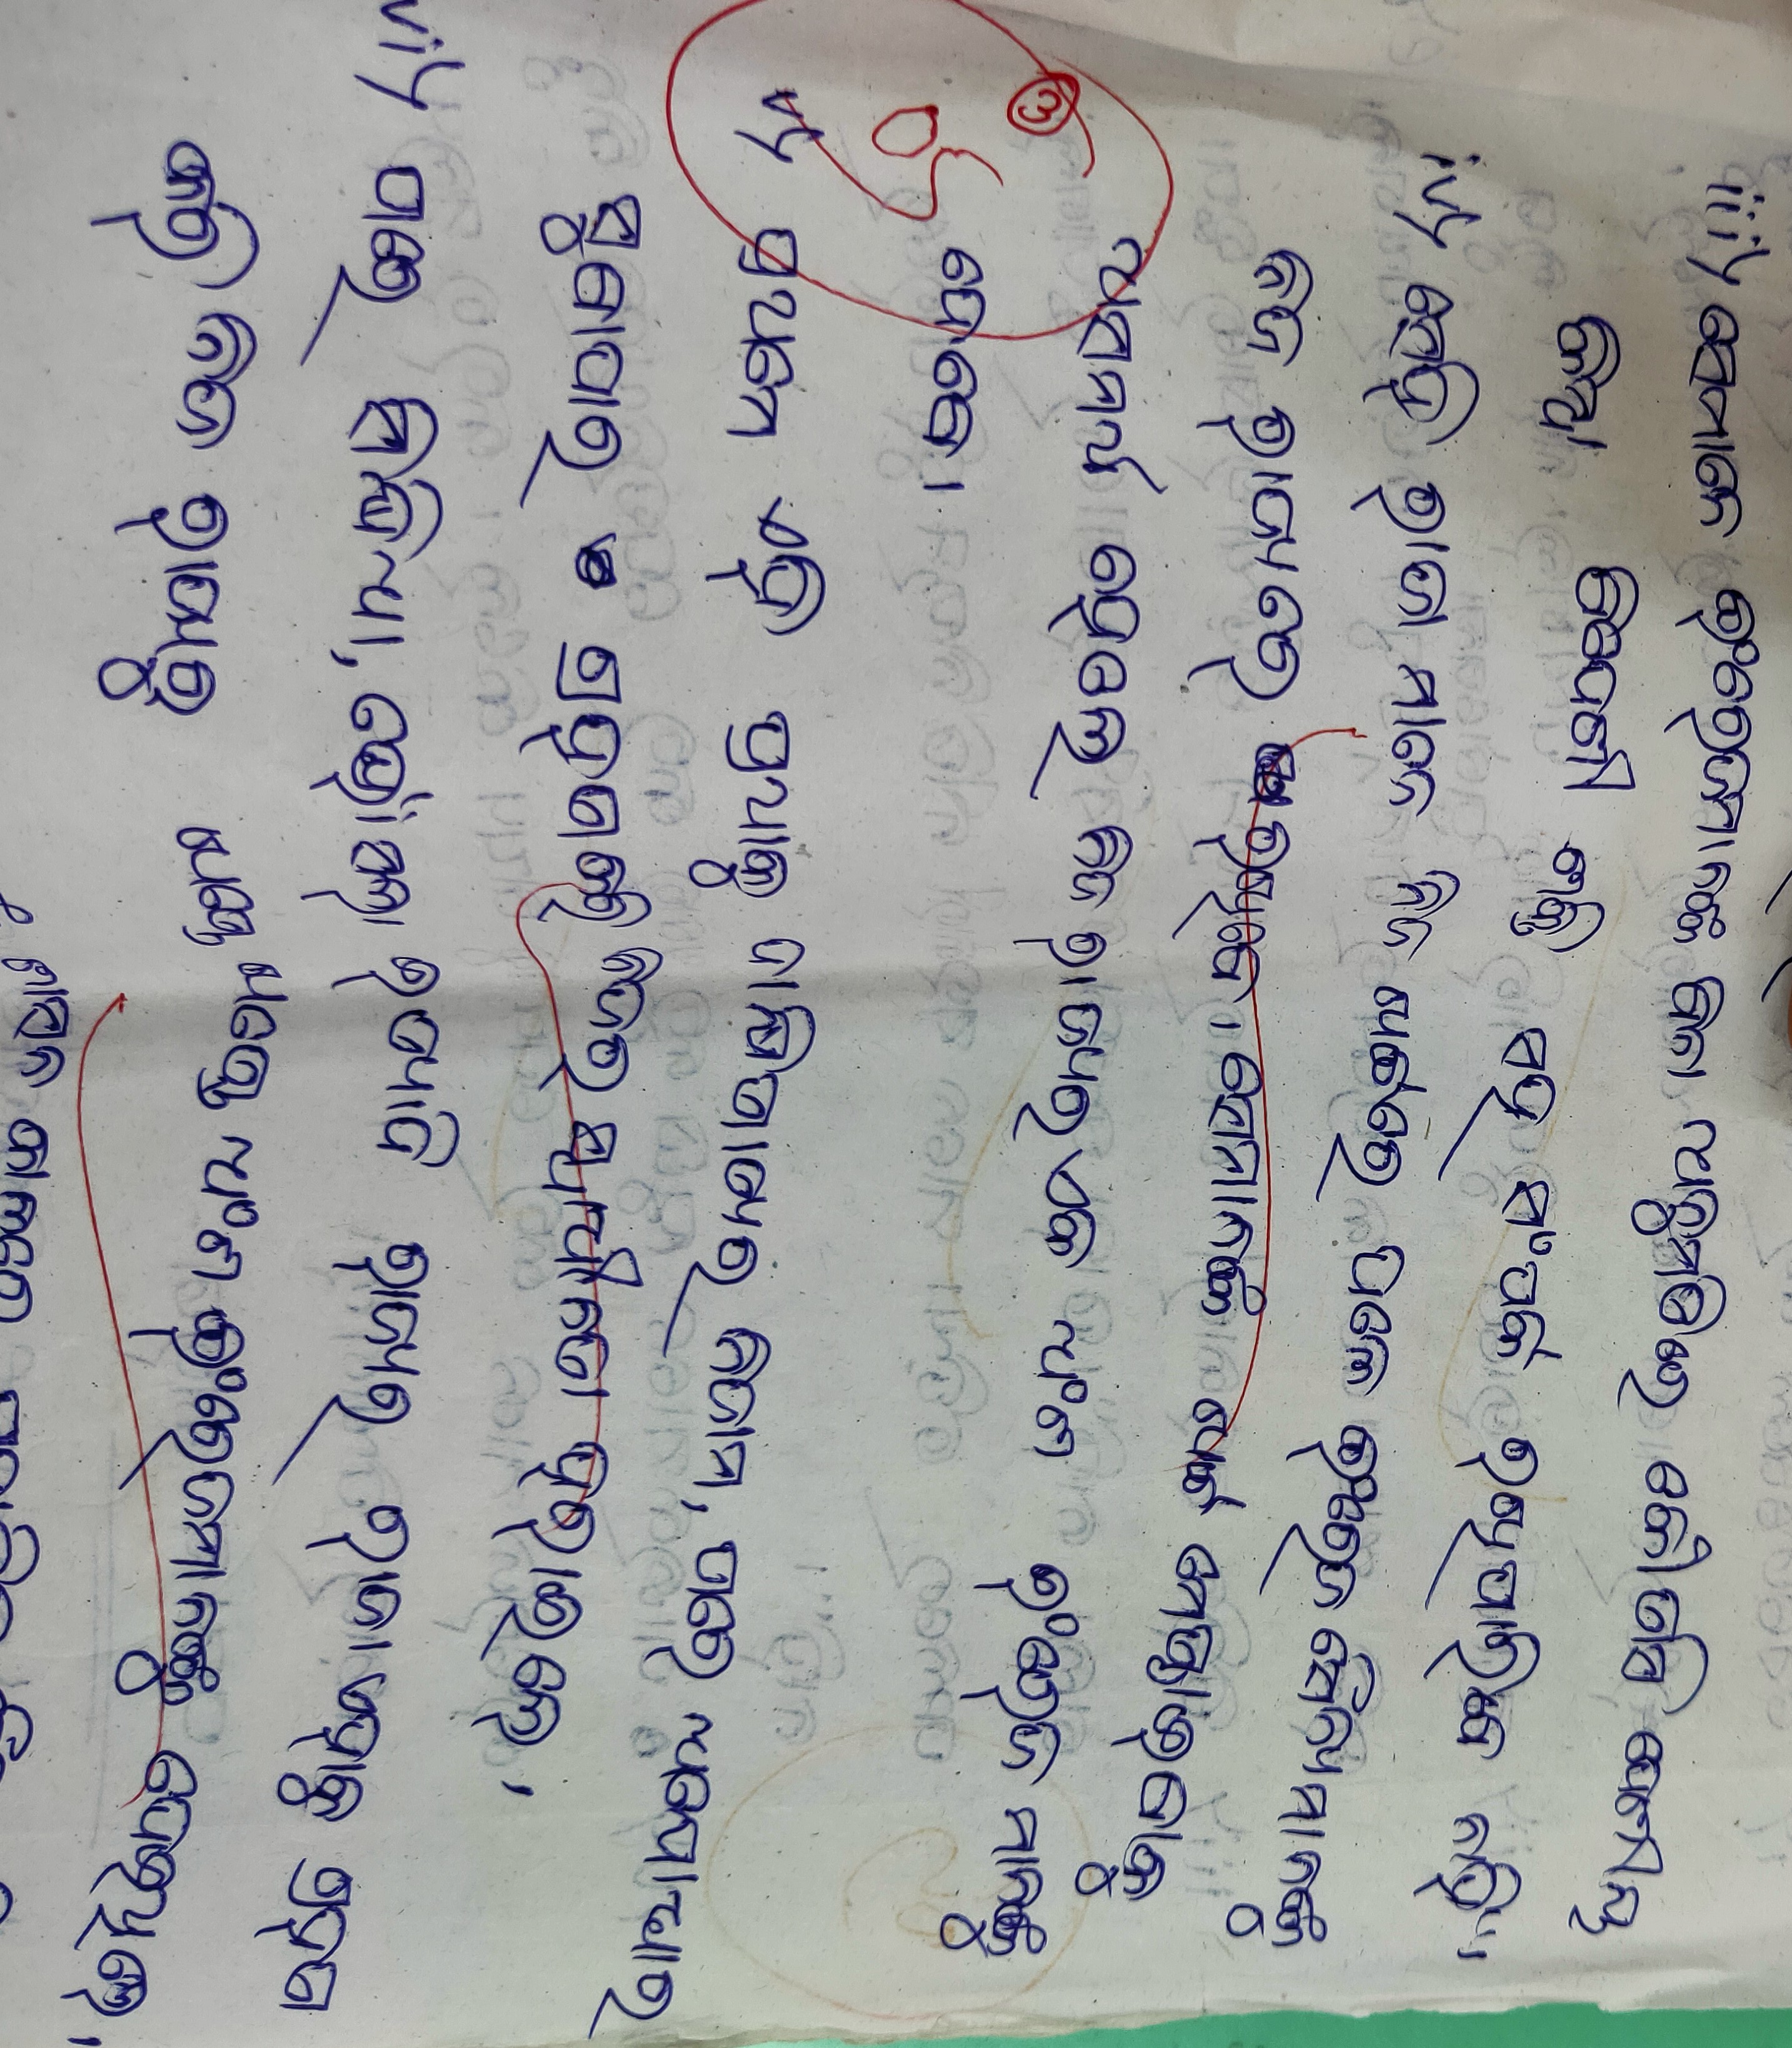 iii) ସେମାନେ ଇଂରେଜମାନଙ୍କ ବିନା ଅନୁମତିରେ କୌଣସି ଦେଶୀୟ
କିମ୍ବା ବିଦେଶୀ ଶକ୍ତି ସହ ସଂପର୍କ ରଖିପାରିବେ ନାହିଁ।
iv) ସେହି ରାଜା ମାନେ ନିଜ ଖର୍ଚ୍ଚରେ ଦଳେ ଇଂରେଜ ସୈନ୍ୟମାନଙ୍କୁ
ନିଜ ରାଜ୍ୟରେ ରଖିବେ। ସେମାନଙ୍କ ଖର୍ଚ୍ଚ ମେଣ୍ଟାଇବାକୁ
ଅସମର୍ଥ ହେଲେ ନିଜ ରାଜ୍ୟର ଏକ ଅଂଶ ଇଂରେଜ ମାନଙ୍କୁ
③
ଦେବେ।
v) ପ୍ରଥମେ ଏହି ପ୍ରଥାକୁ ଦାକ୍ଷିଣାତ୍ୟର ନିଜାମ, ପରେ ଅଯୋଧ୍ୟାର
ସୁବାଦାର ଗ୍ରହଣକରି ନିଜର ସ୍ୱାଧୀନତା ହରାଇଲେ।
vi) ପରେ ସିନ୍ଧିଆ, ଭୋଁସଲା ଇତ୍ୟାଦି ରାଜ୍ୟର ରାଜା ଏହାକୁ ଗ୍ରହଣ
କରି ନିଜ ରାଜ୍ୟରୁ ଖଣ୍ଡେ ଖଣ୍ଡେ ଅଂଶ ଇଂରେଜମାନଙ୍କୁ ଦେଇଥିଲେ।
ଶାସନ କାଳରେ